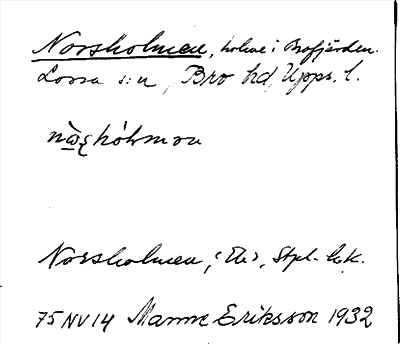 Norsholmen, holme i Brofjärden.
Lossa s:n, Bro hd, Upps. l.
Norsholmen, Stpl. bl.
75 NV 14 Manne Eriksson 1932